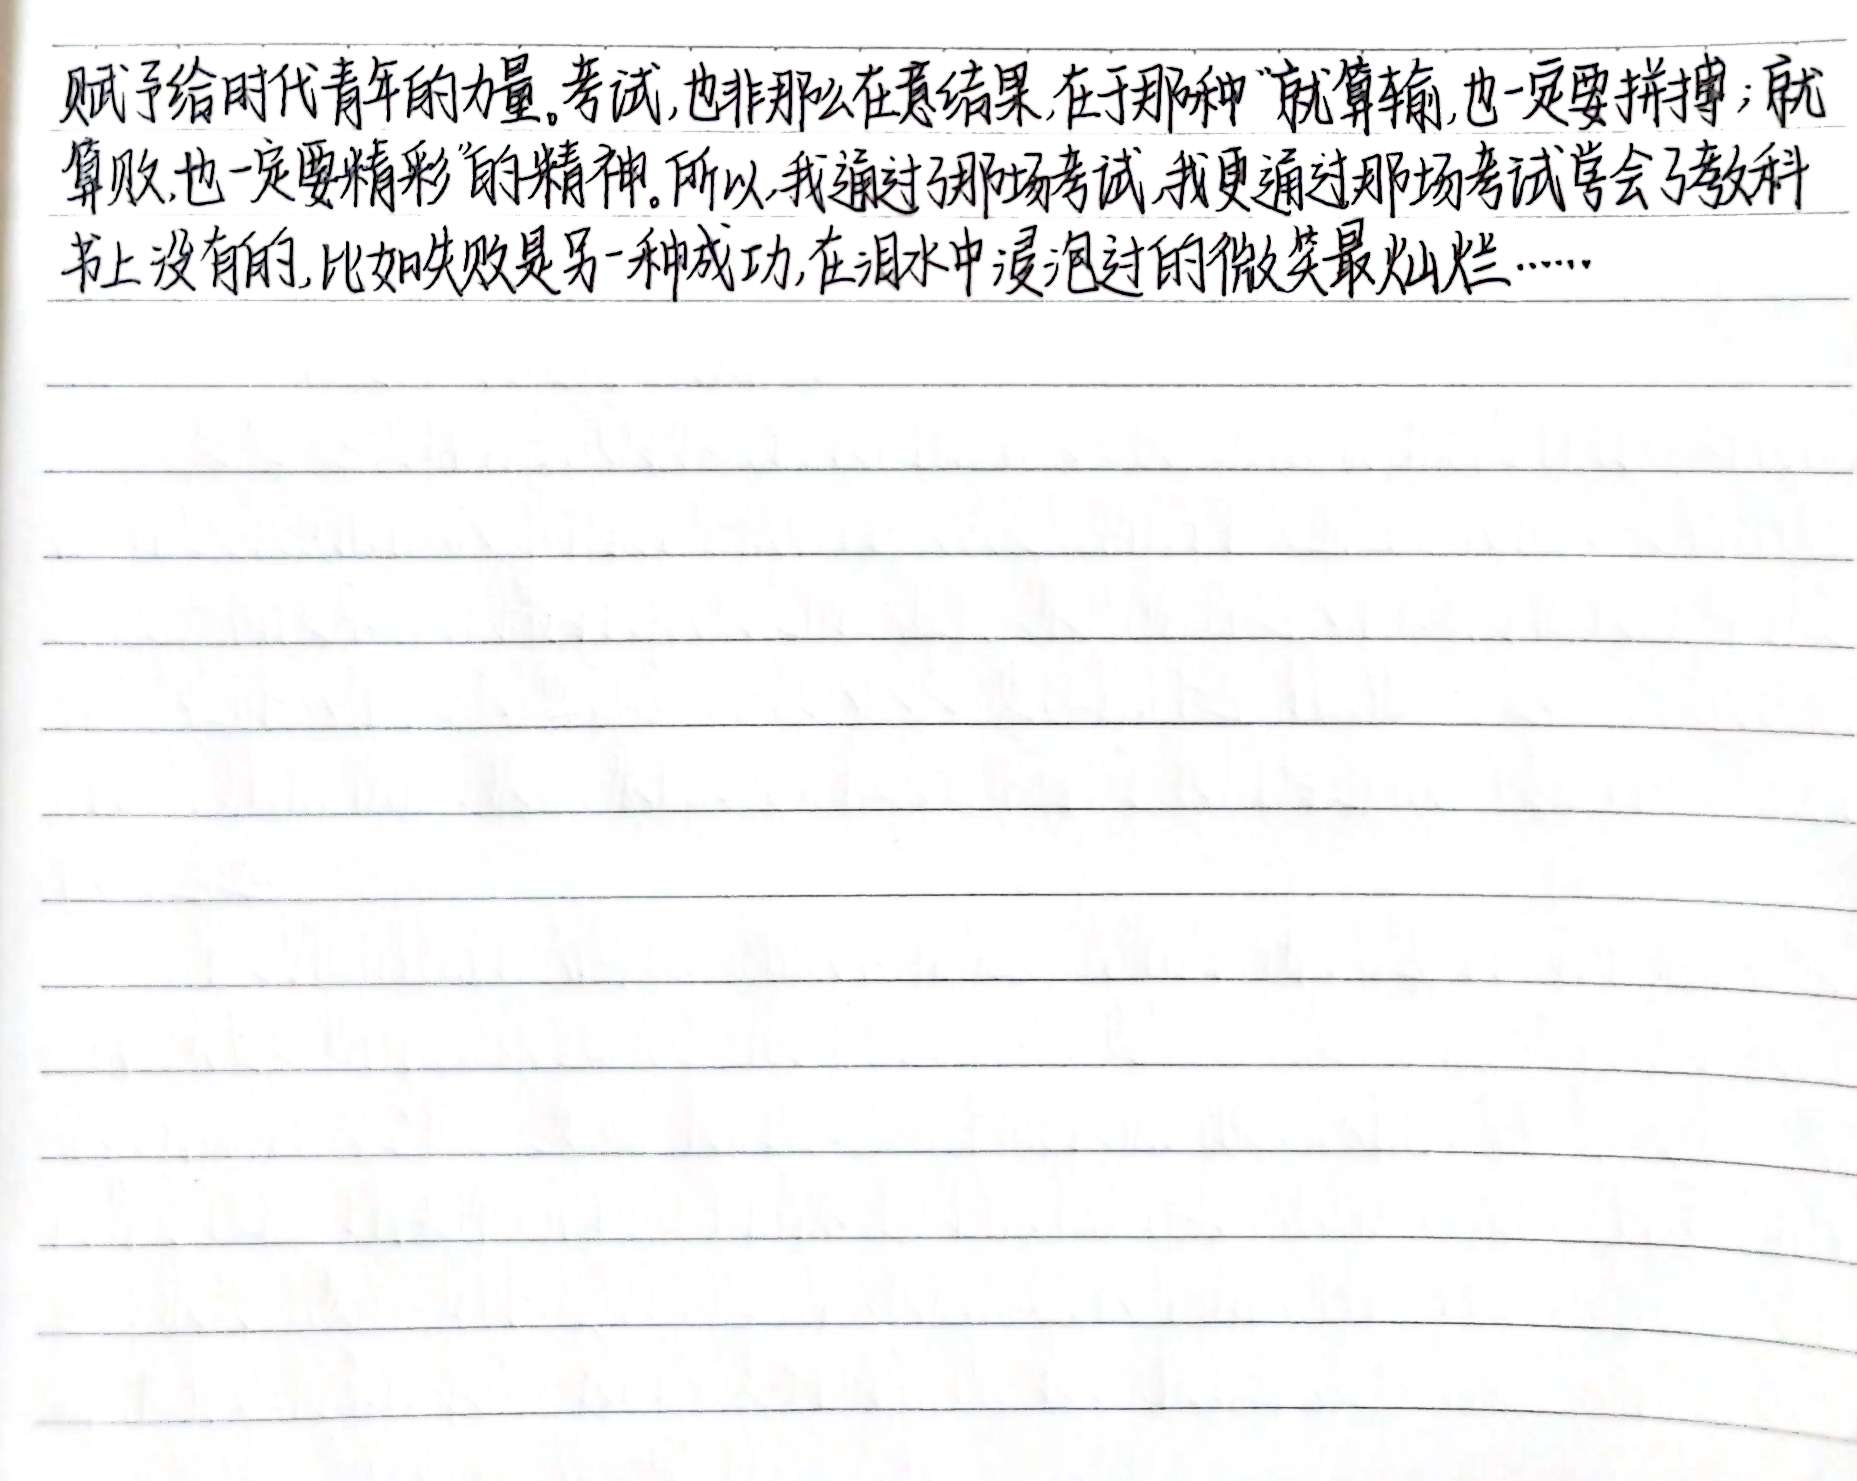 赋予给时代青年的力量。考试,也非那么在意结果,在于那种“就算输,也一定要拼搏;就
算败,也一定要精彩”的精神。所以,我通过了那场考试,我更通过那场考试学会了教科
书上没有的,比如失败是另一种成功,在泪水中浸泡过的微笑最灿烂……